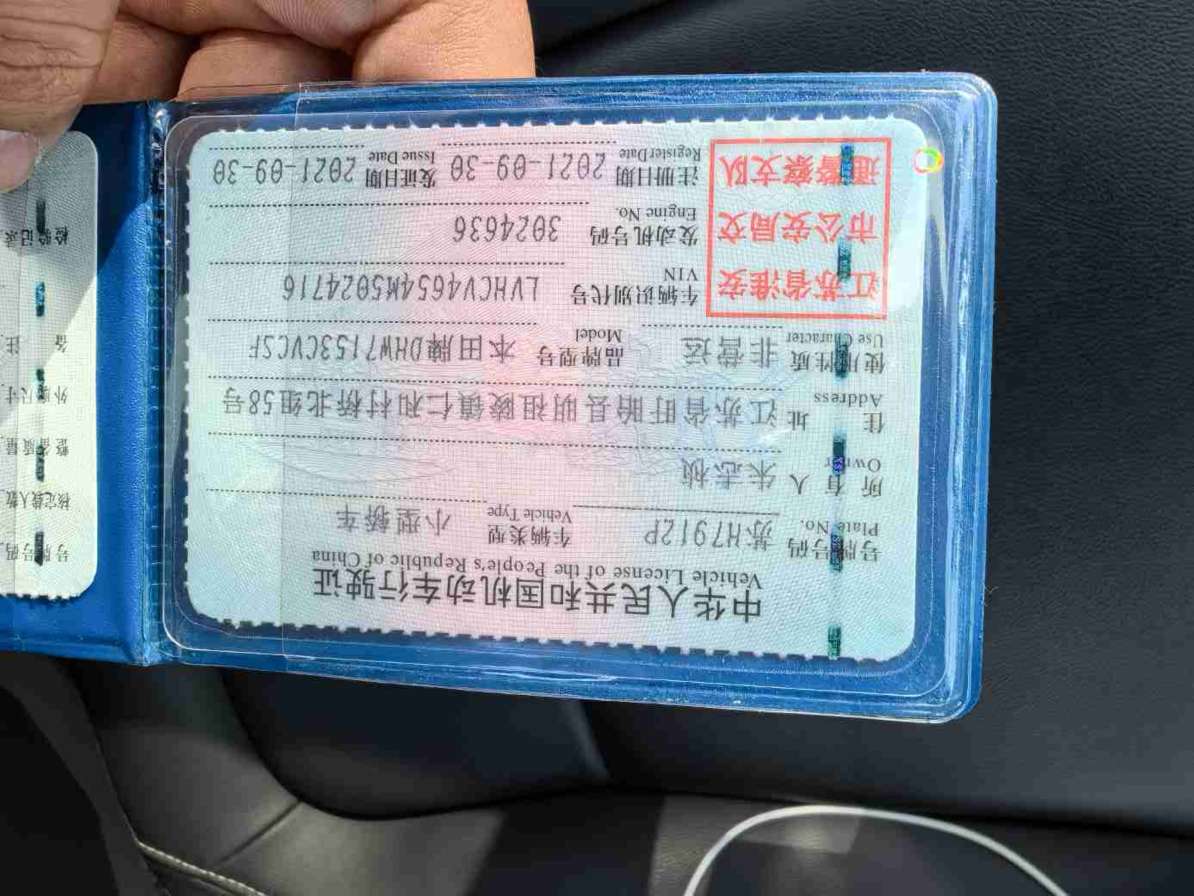 中华人民共和国机动车行驶证
Vehicle License of the People's Republic of China
号牌号码 Plate No. 苏H7912P 车辆类型 Vehicle Type 小型轿车
所有人 Owner 朱志桢
住址 Address 江苏省盱眙县明祖陵镇仁和村桥北组58号
使用性质 Use Character 非营运 品牌型号 Model 本田牌DHW7153CVCSF
江苏省淮安
市公安局交
通警察支队
车辆识别代号 VIN LVHCV4654M5024716
发动机号码 Engine No. 3024636
注册日期 Register Date 2021-09-30 发证日期 Issue Date 2021-09-30
号牌号码
核定载人数
整备质量
外廓尺寸
备注
检验记录